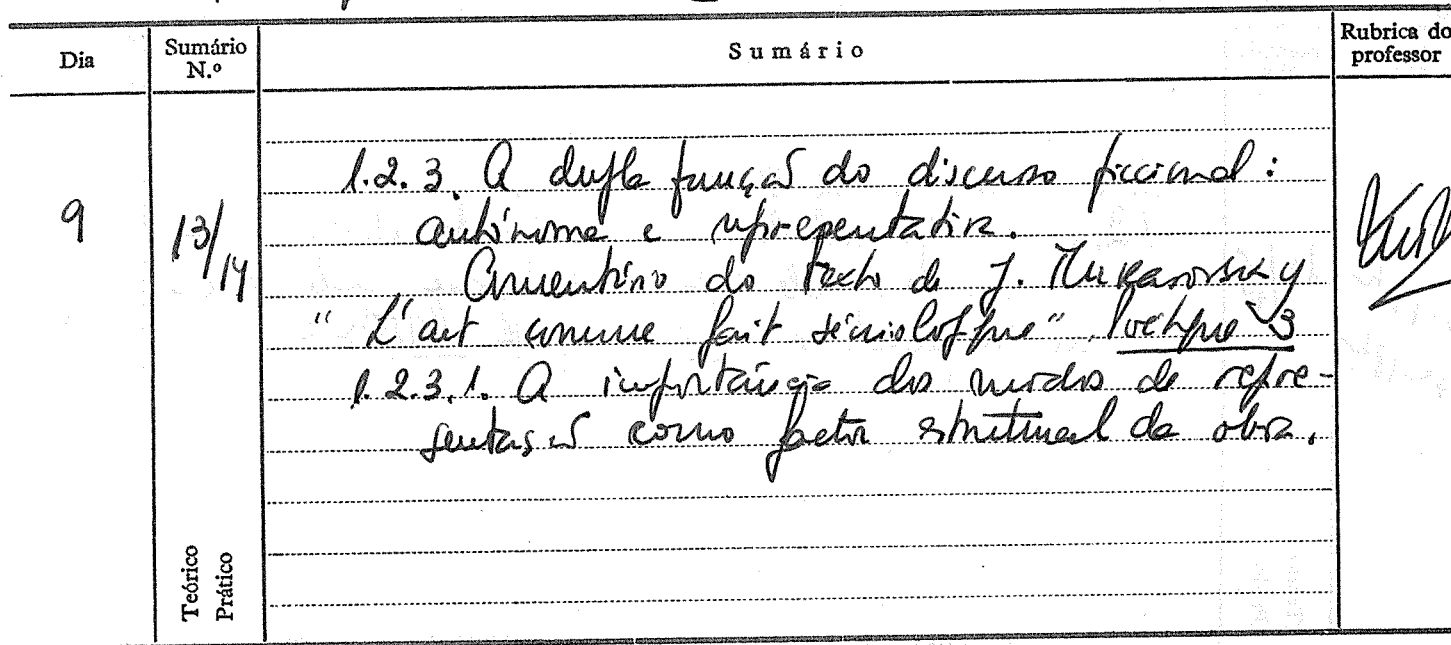 Dia
Sumário
N.º
Sumário
Rubrica do
professor
9
13/14
1.2.3. A dupla função do discurso ficcional:
autónoma e representativa.
Comentário do texto de J. Mukarovsky
"L'art comme fait sémiologique" Poétique 3
1.2.3.1. A importância dos modos de repre-
sentação como factor estrutural da obra.
Teórico
Prático